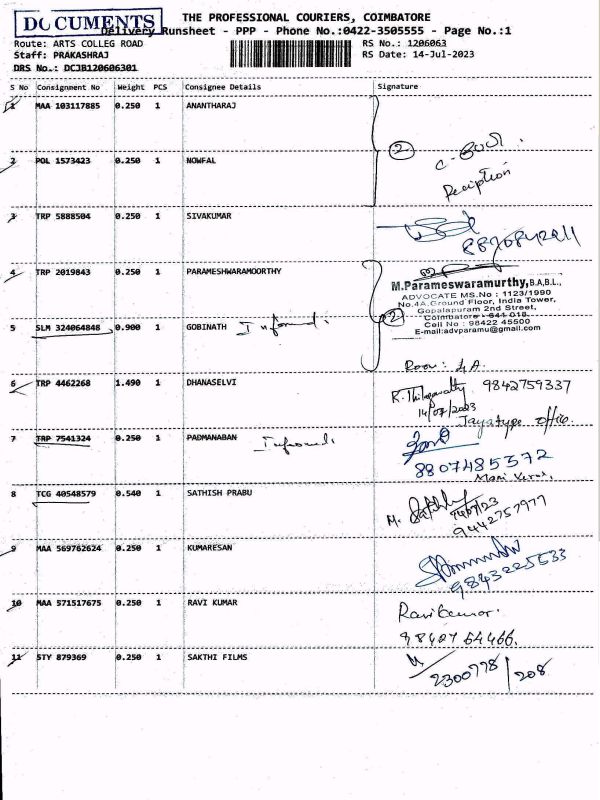 DOCUMENTS
THE PROFESSIONAL COURIERS, COIMBATORE
Delivery Runsheet - PPP - Phone No.:0422-3505555 - Page No.:1
Route: ARTS COLLEG ROAD
RS No.: 1206063
Staff: PRAKASHRAJ
RS Date: 14-Jul-2023
DRS No.: DCJB120606301
S No Consignment No Weight PCS Consignee Details Signature
1 MAA 103117885 0.250 1 ANANTHARAJ
2
Reception
2 POL 1573423 0.250 1 NOWFAL
3 TRP 5888504 0.250 1 SIVAKUMAR
4 TRP 2019843 0.250 1 PARAMESHWARAMOORTHY
M.Parameswaramurthy, B.A,B.L.,
ADVOCATE MS.No : 1123/1990
No.4A, Ground Floor, India Tower,
Gopalapuram 2nd Street,
Coimbatore - 641 018.
Cell No : 98422 45500
E-mail:advparamu@gmail.com
2
5 SLM 324064848 0.900 1 GOBINATH Informed.
Door : 4A.
6 TRP 4462268 1.490 1 DHANASELVI
9842759337
14/07/2023
Jayatype office.
7 TRP 7541324 0.250 1 PADMANABAN Informed.
8807485372
8 TCG 40548579 0.540 1 SATHISH PRABU
9442757977
9 MAA 569762624 0.250 1 KUMARESAN
9843225533
10 MAA 571517675 0.250 1 RAVI KUMAR
Ravikumar.
98407 64466.
11 STY 879369 0.250 1 SAKTHI FILMS
2300778/208